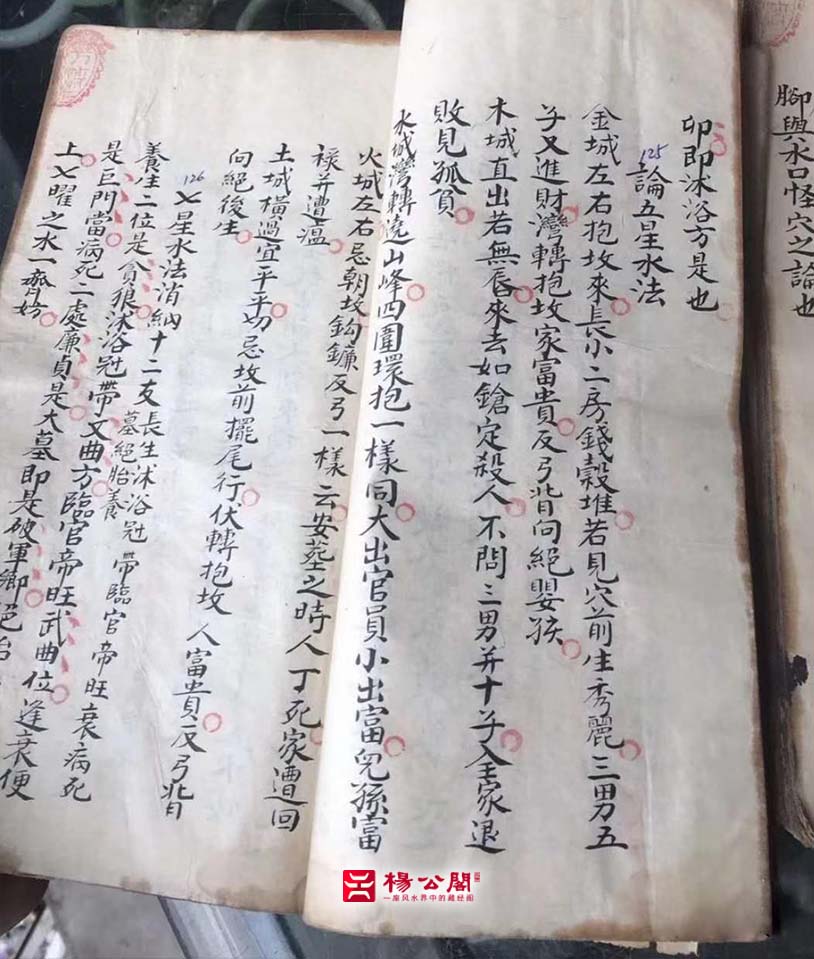 腳與水口怪穴之論也
卯即沐浴方是也
125
論五星水法
金城左右抱坟來長小二房錢穀堆若見穴前生秀麗三男五
子又進財灣轉抱坟家富貴反弓背向絕嬰孩
木城直出若無唇來去如鎗定殺人不問三男并十子全家退
敗見孤貧
水城灣轉遶山峰四圍環抱一樣同大出官員小出富兒孫富
火城左右忌朝坟鈎鐮反弓一樣云安墓之時人丁死家遭回
祿并遭温
土城橫過宜平平切忌坟前擺尾行伏轉抱坟人富貴反弓背
向絕後生
126
七星水法消納十二支長生沐浴冠帶臨官帝旺衰病死
墓絕胎養
養生二位是貪狼沐浴冠帶文曲方臨官帝旺武曲位逢衰便
是巨門當病死二處廉貞是大墓即是破軍鄉絕胎
上七曜之水一齊妨
楊公閣
一座风水界中的藏经阁